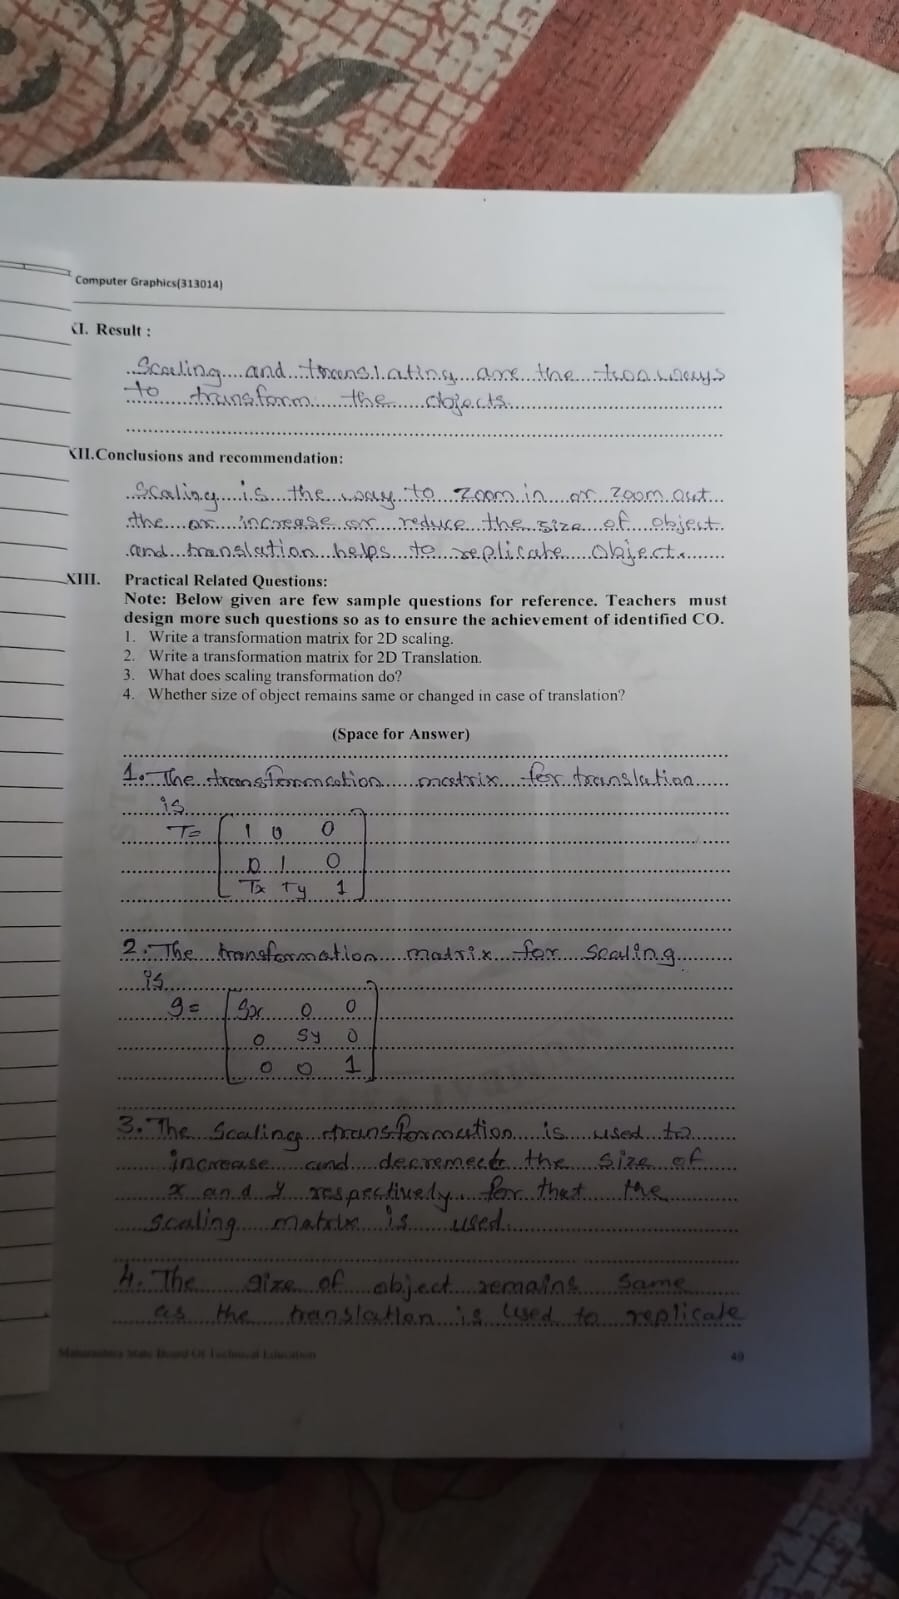 Computer Graphics(313014)
XI. Result :
Scaling and translating are the two ways
to transform the objects.
XII.Conclusions and recommendation:
Scaling is the way to zoom in or zoom out
the or increase or reduce the size of object
and translation helps to replicate object.
XIII. Practical Related Questions:
Note: Below given are few sample questions for reference. Teachers must
design more such questions so as to ensure the achievement of identified CO.
1. Write a transformation matrix for 2D scaling.
2. Write a transformation matrix for 2D Translation.
3. What does scaling transformation do?
4. Whether size of object remains same or changed in case of translation?
(Space for Answer)
1. The transformation matrix for translation
is
T= [ 1 0 0
0 1 0
Tx Ty 1 ]
2. The transformation matrix for scaling
is
S= [ Sx 0 0
0 Sy 0
0 0 1 ]
3. The Scaling transformation is used to
increase and the size of
x and y respectively. for that the
scaling matrix is used.
4. The size of object remains same
as the translation is used to replicate
Maharashtra State Board Of Technical Education 49